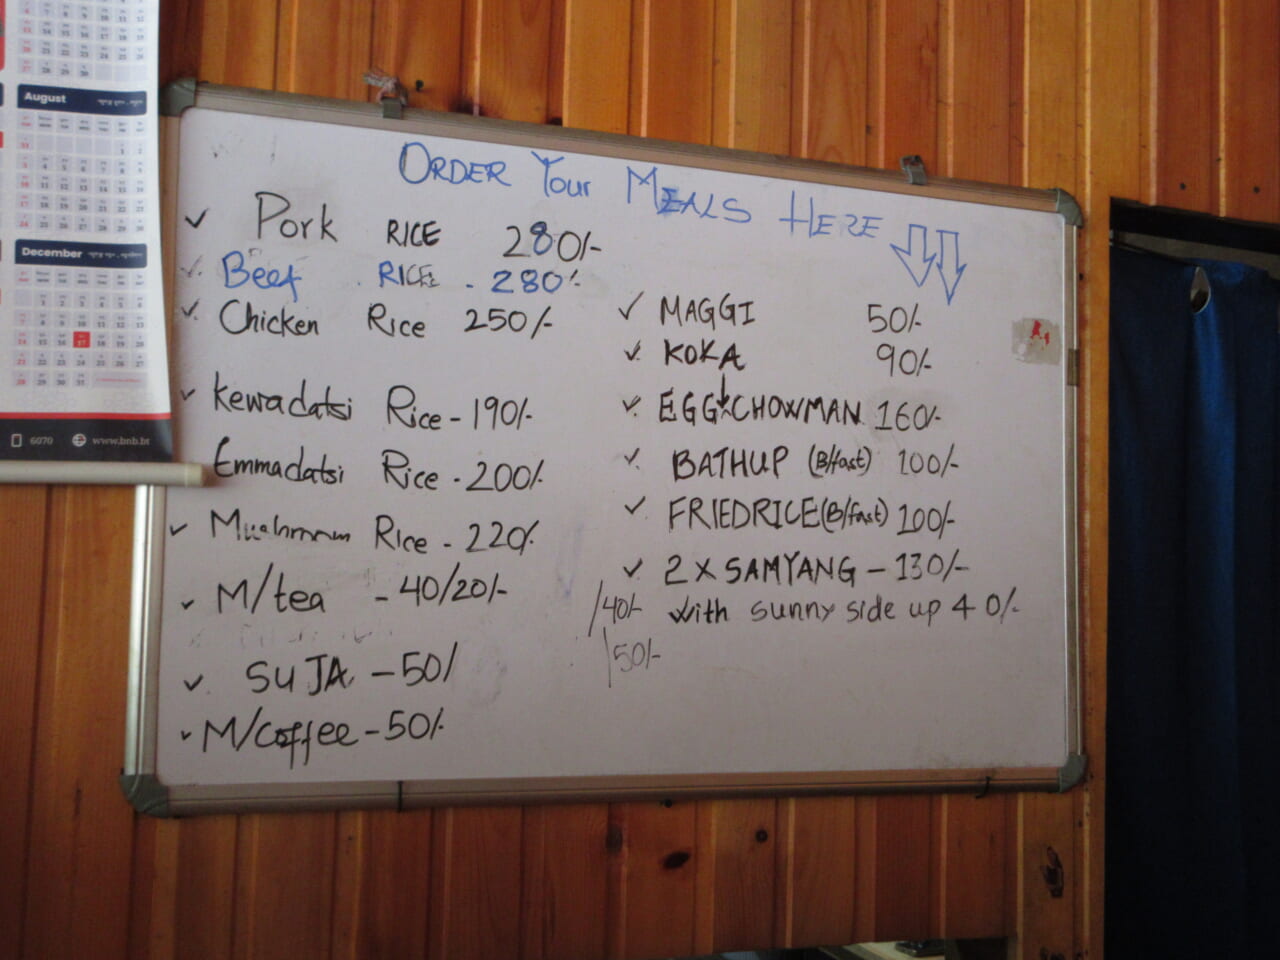 August
December
6070 www.bnb.bt
ORDER Your MEALS HERE
Pork RICE 280/-
Beef RICE - 280/-
Chicken Rice 250/-
Kewadatsi Rice - 190/-
Emmadatsi Rice - 200/-
Mushroom Rice - 220/-
M/tea - 40/20/-
SUJA - 50/
M/Coffee - 50/-
MAGGI 50/-
KOKA 90/-
EGG CHOWMAN 160/-
BATHUP (B/fast) 100/-
FRIEDRICE (B/fast) 100/-
2 X SAMYANG - 130/-
/40/- with sunny side up 40/-
50/-